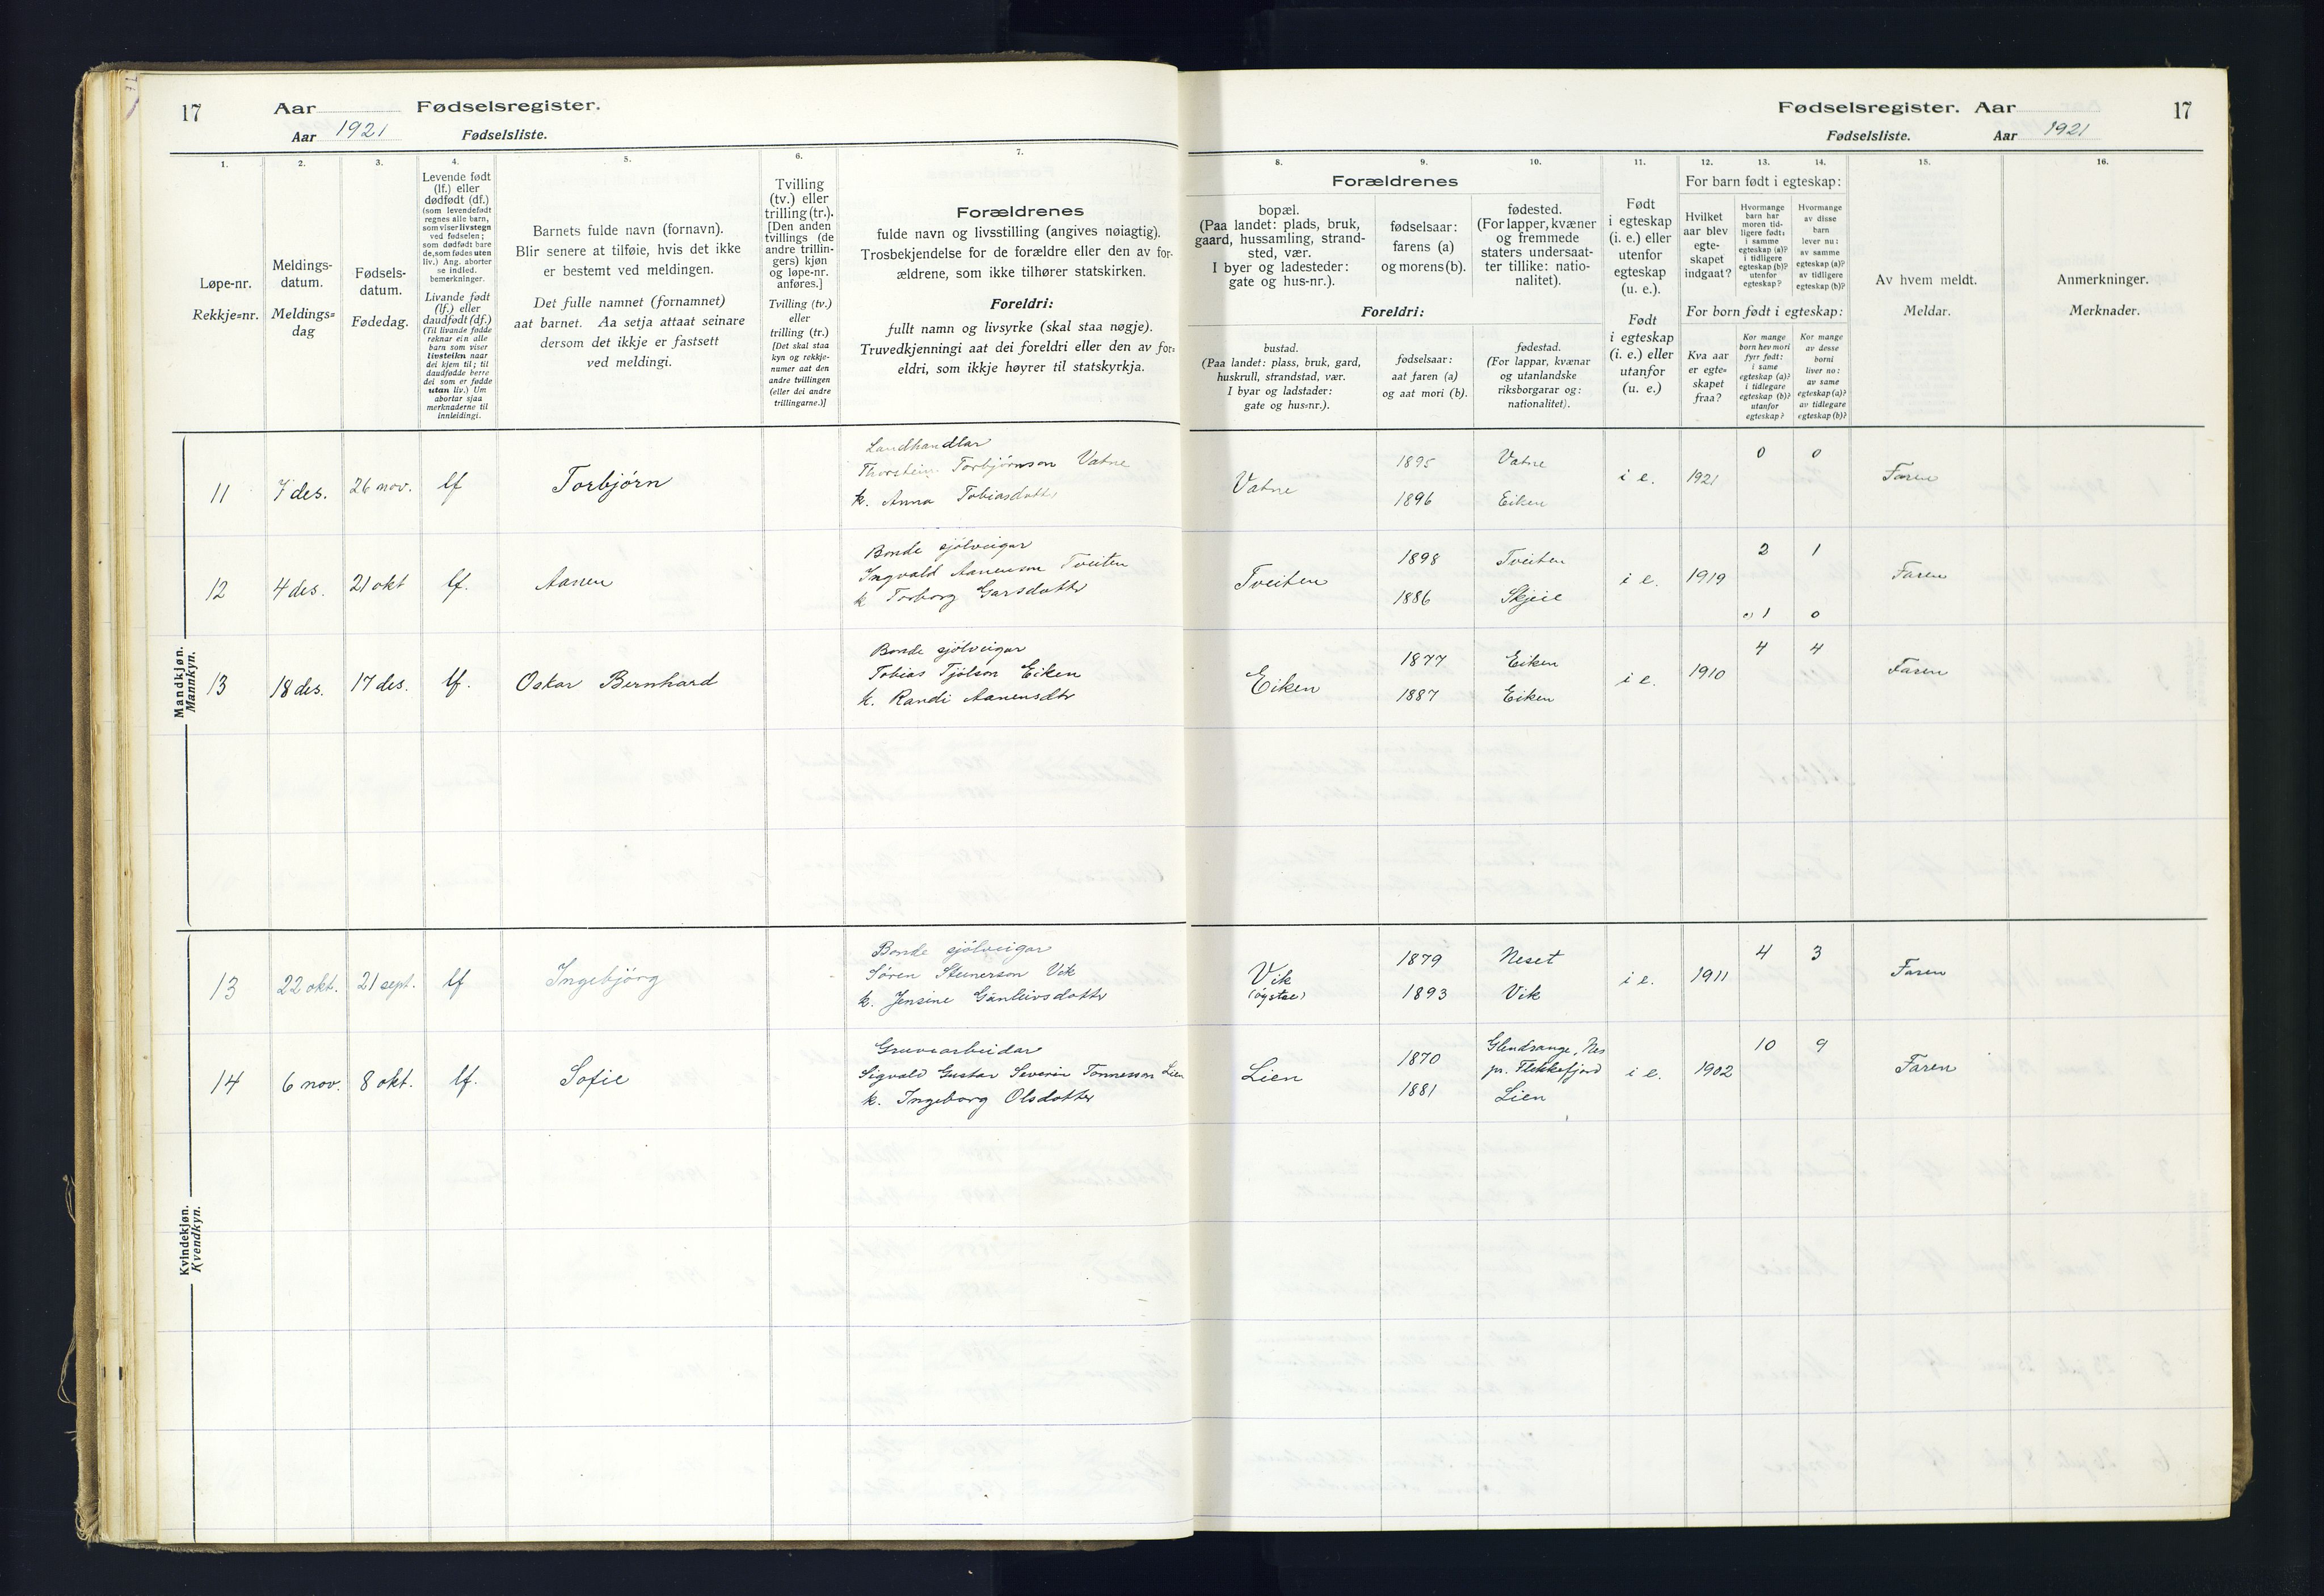 17 Aar Fødselsregister.
Aar 1921 Fødselsliste.
Fødselsregister. Aar 17
Fødselsliste. Aar 1921
1.
Løpe-nr.
Rekkje=nr.
2.
Meldings-
datum.
Meldings=
dag
3.
Fødsels-
datum.
Fødedag.
4.
Levende født
(lf.) eller
dødfødt (df.)
(som levendefødt
regnes alle barn,
som viser livstegn
ved fødselen;
som dødfødt bare
de, som fødes uten
liv.) Ang. aborter
se indled.
bemerkninger.
Livande født
(lf.) eller
daudfødt (df.)
(Til livande fødde
reknar ein alle
barn som viser
livsteikn naar
dei kjem til; til
daudfødde berre
dei som er fødde
utan liv.) Um
abortar sjaa
merknaderne til
innleidingi.
5.
Barnets fulde navn (fornavn).
Blir senere at tilføie, hvis det ikke
er bestemt ved meldingen.
Det fulle namnet (fornamnet)
aat barnet. Aa setja attaat seinare
dersom det ikkje er fastsett
ved meldingi.
6.
Tvilling
(tv.) eller
trilling (tr.).
[Den anden
tvillings (de
andre trillin-
gers) kjøn
og løpe-nr.
anføres.]
Tvilling (tv.)
eller
trilling (tr.)
[Det skal staa
kyn og rekkje-
numer aat den
andre tvillingen
(eller dei andre
trillingarne.)]
7.
Forældrenes
fulde navn og livsstilling (angives nøiagtig).
Trosbekjendelse for de forældre eller den av for-
ældrene, som ikke tilhører statskirken.
Foreldri:
fullt namn og livsyrke (skal staa nøgje).
Truvedkjenningi aat dei foreldri eller den av for=
eldri, som ikkje høyrer til statskyrkja.
Forældrenes
8.
bopæl.
(Paa landet: plads, bruk,
gaard, hussamling, strand-
sted, vær.
I byer og ladesteder:
gate og hus-nr.).
9.
fødselsaar:
farens (a)
og morens (b).
10.
fødested.
(For lapper, kvæner
og fremmede
staters undersaat-
ter tillike: natio-
nalitet).
Foreldri:
bustad.
(Paa landet: plass, bruk, gard,
huskrull, strandstad, vær.
I byar og ladstader:
gate og hus=nr.).
fødselsaar:
aat faren (a)
og aat mori (b).
fødestad.
(For lappar, kvænar
og utanlandske
riksborgarar og:
nationalitet).
11.
Født
i egteskap
(i. e.) eller
utenfor
egteskap
(u. e.).
Født
i egteskap
(i. e.) eller
utanfor
(u. e.)
For barn født i egteskap:
12.
Hvilket
aar blev
egte-
skapet
indgaat?
13.
Hvormange
barn har
moren tid-
ligere født:
i samme
egteskap (a)?
i tidligere
egteskap (b)?
utenfor
egteskap?
14.
Hvormange
av disse
barn
lever nu:
av samme
egteskap (a)?
av tidligere
egteskap (b)?
For born født i egteskap:
Kva aar
er egte=
skapet
fraa?
Kor mange
born hev mori
fyrr født:
i same
egteskap (a)?
i tidlegare
egteskap (b)?
utanfor
egteskap?
Kor mange
av desse
borni
liver no:
av same
egteskap (a)?
av tidlegare
egteskap (b)?
15.
Av hvem meldt.
Meldar.
16.
Anmerkninger.
Merknader.
Mandkjøn.
Mannkyn.
Landhandlar
11 7 des. 26 nov. lf Torbjørn Thorstein Torbjörnson Vatne
k. Anna Tobiasdotter
Vatne 1895 Vatne i e. 1921 0 0 Faren
1896 Eiken
Bonde sjölveigar
12 4 des. 21 okt lf. Aanen Ingvald Aanenson Tveiten
k Torborg Garsdotter
Tveiten 1898 Tveiten i e. 1919 2 1 Faren
1886 Skjeie 1 0
Bonde sjölveigar
13 18 des. 17 des. lf. Oskar Bernhard Tobias Tjölson Eiken
k. Randi Aanensdtr
Eiken 1877 Eiken i e. 1910 4 4 Faren
1887 Eiken
Kvindekjøn.
Kvendkyn.
Bonde sjölveigar
13 22 okt. 21 sept. lf Ingebjörg Sören Steinerson Vik
k. Jensine Gunleivsdotter
Vik 1879 Neset i e. 1911 4 3 Faren
1893 Vik
Gruvearbeidar
14 6 nov. 8 okt. lf. Sofie Sigvald Gustav Severin Tonnesson Lien
k. Ingeborg Olsdotter
Lien 1870 Glendrange, Nes
pr. Flekkefjord i e. 1902 10 9 Faren
1881 Lien